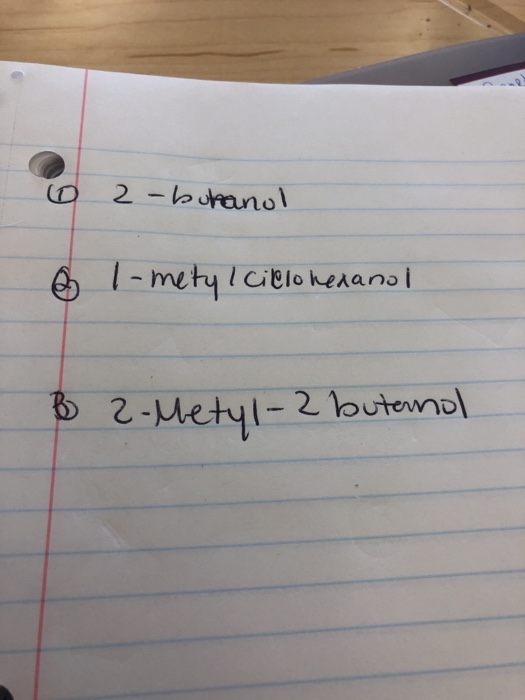 ① 2-butanol
② 1-metylciclohexanol
③ 2-Metyl-2 butanol